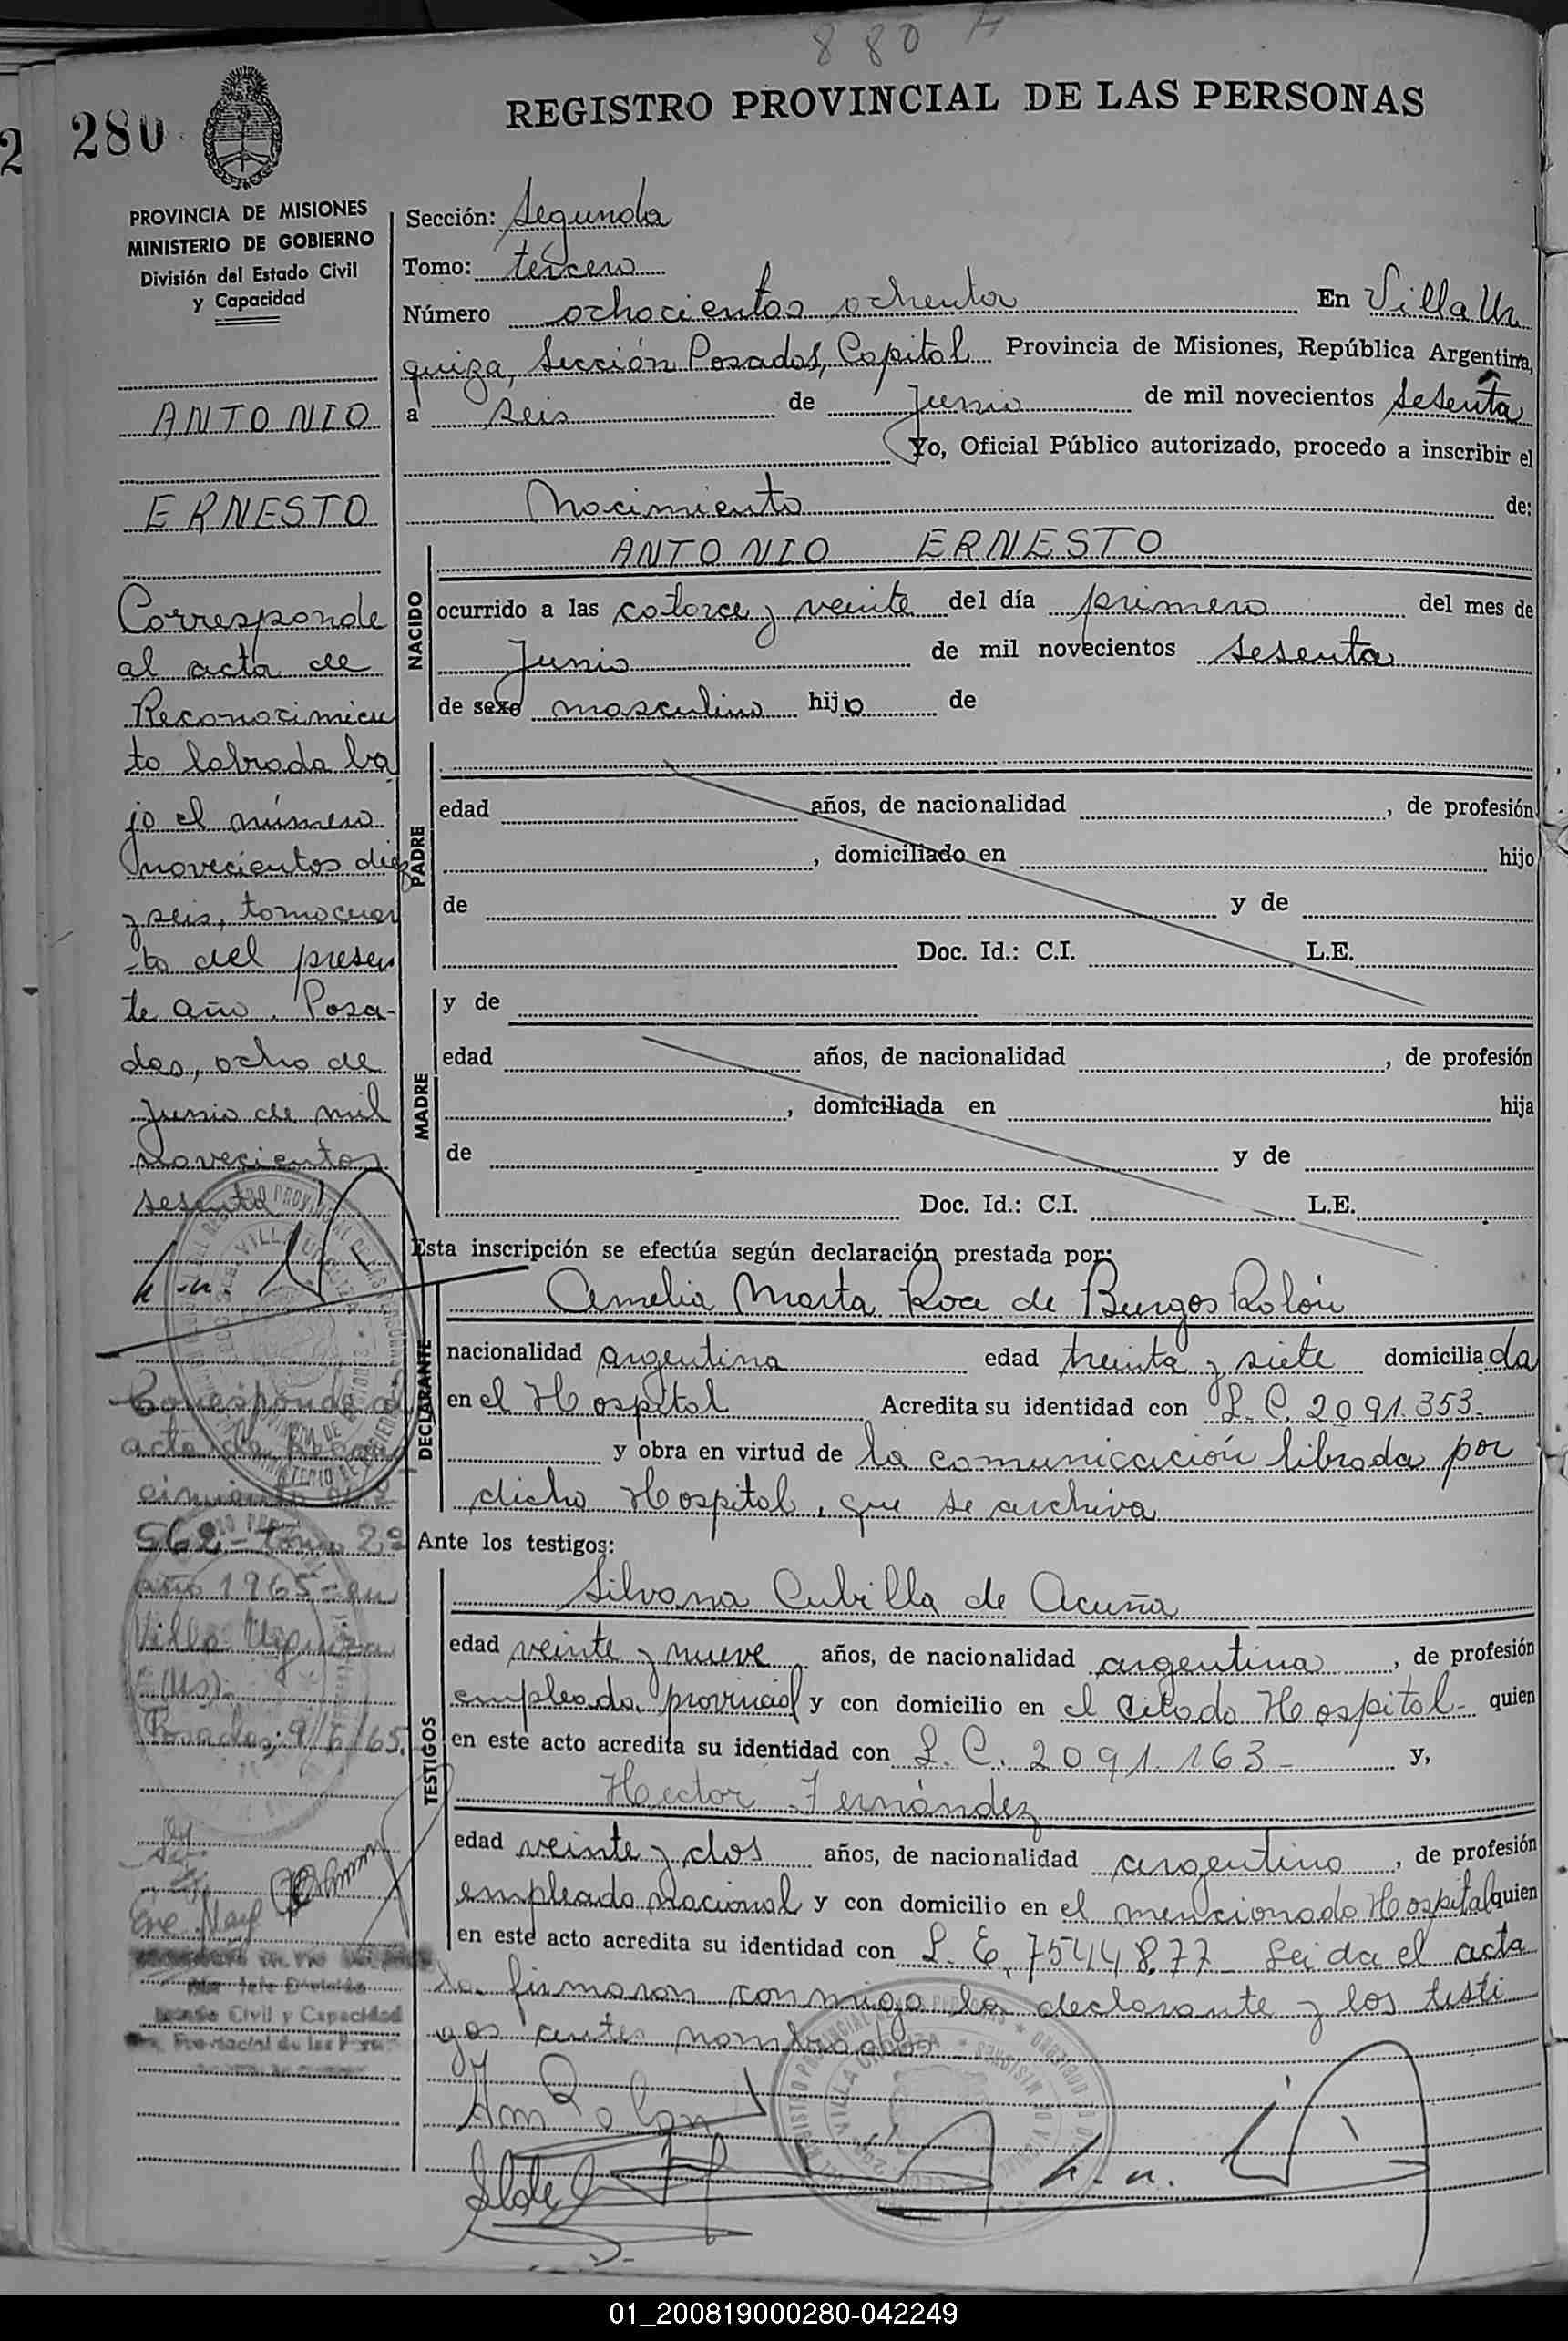 880
280
REGISTRO PROVINCIAL DE LAS PERSONAS
PROVINCIA DE MISIONES
MINISTERIO DE GOBIERNO
División del Estado Civil
y Capacidad
ANTONIO
ERNESTO
Corresponde
al acta de
Reconocimien
to labrada ba
jo el número
novecientos diez
y seis, tomo cuar
-to del presen
te año. Posa-
das, ocho de
Junio de mil
novecientos
sesenta
Corresponde al
acta de Recono
cimiento nº
562 - tomo 2º
año 1965 - en
Villa Urquiza
Posadas, 9/6/65.
Estado Civil y Capacidad
Sección: Segunda
Tomo: tercero
Número ochocientos ochenta En Villa Ur
quiza, Sección Posadas, Capital Provincia de Misiones, República Argentina,
a seis de Junio de mil novecientos sesenta
Yo, Oficial Público autorizado, procedo a inscribir el
Nacimiento de:
NACIDO
ANTONIO ERNESTO
ocurrido a las catorce y veinte del día primero del mes de
Junio de mil novecientos sesenta
de sexo masculino hijo de
PADRE
edad años, de nacionalidad , de profesión
, domiciliado en hijo
de y de
Doc. Id.: C.I. L.E.
MADRE
y de
edad años, de nacionalidad , de profesión
, domiciliada en hija
de y de
Doc. Id.: C.I. L.E.
Esta inscripción se efectúa según declaración prestada por:
DECLARANTE
Amelia Marta Roa de Burgos Rolón
nacionalidad argentina edad treinta y siete domiciliada
en el Hospital Acredita su identidad con L.C. 2091.353.
y obra en virtud de la comunicación librada por
dicho Hospital, que se archiva
Ante los testigos:
TESTIGOS
Silvana Cubilla de Acuña
edad veinte y nueve años, de nacionalidad argentina, de profesión
empleada provincial y con domicilio en el citado Hospital - quien
en este acto acredita su identidad con L.C. 2091.163 - y,
Hector Fernández
edad veinte y dos años, de nacionalidad argentino, de profesión
empleado nacional y con domicilio en el mencionado Hospital quien
en este acto acredita su identidad con L.E. 7544877 - Leida el acta
la firmaron conmigo la declarante y los testi
gos antes nombrados
01_200819000280-042249